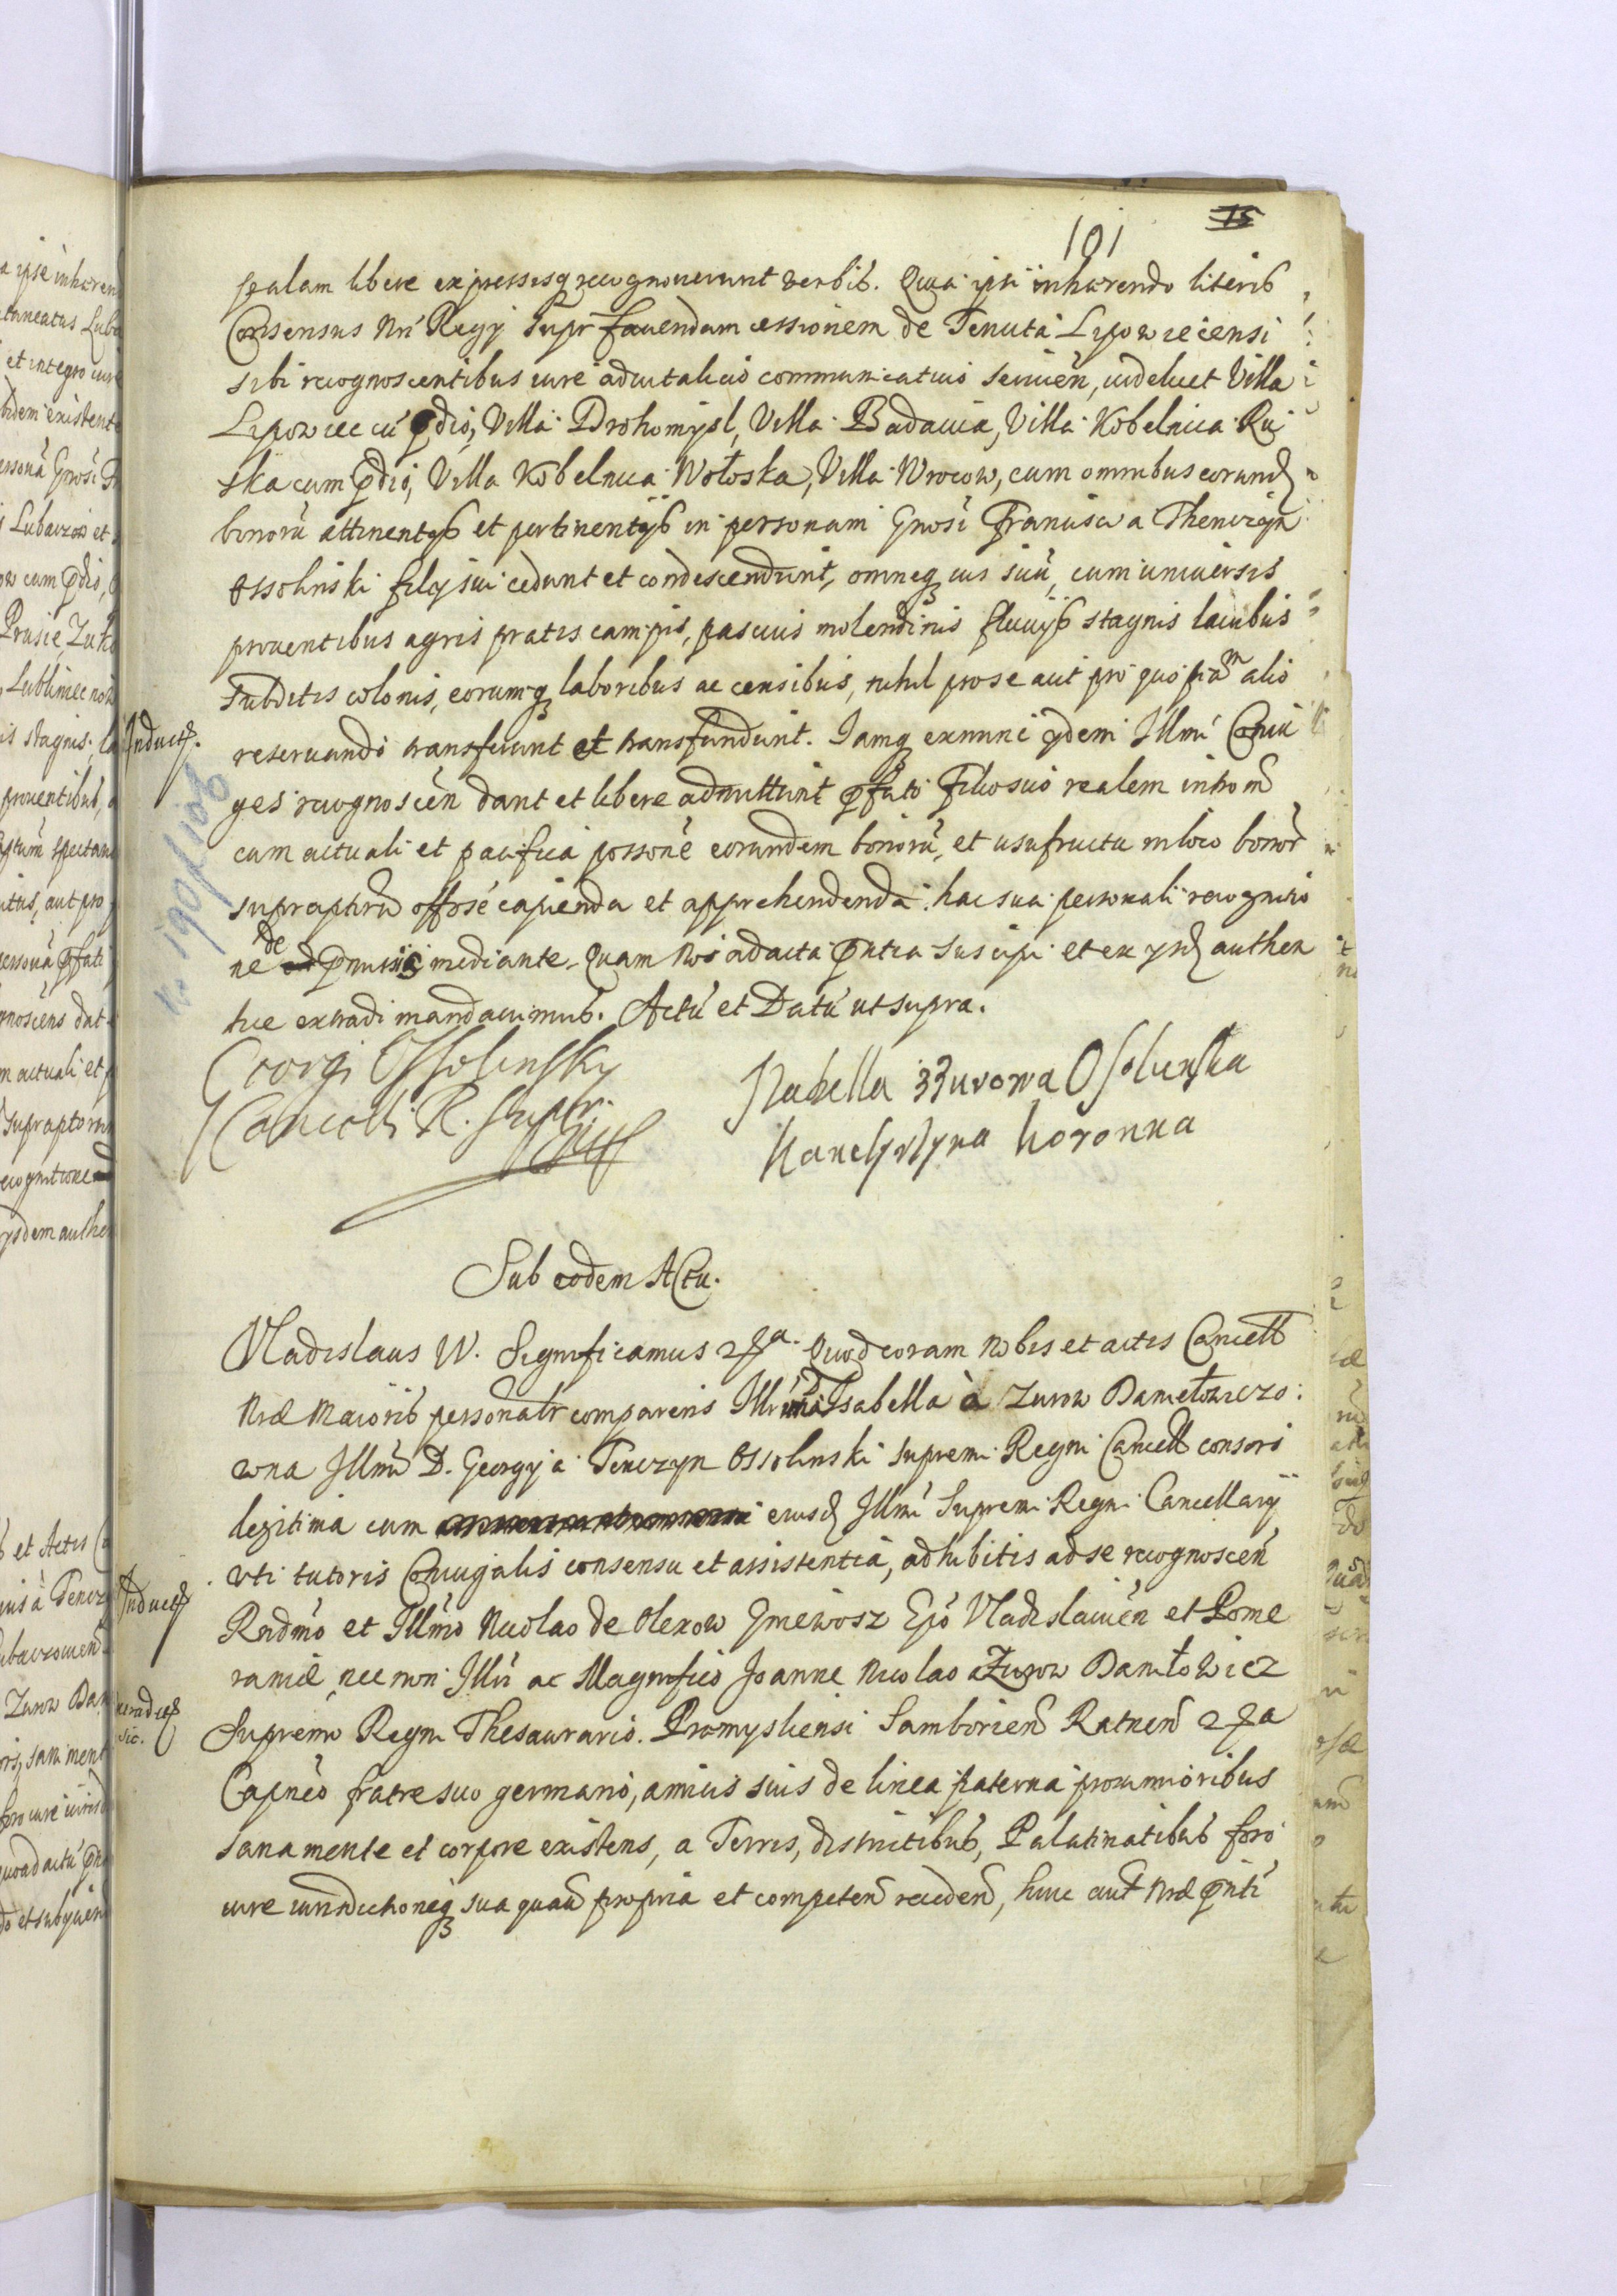 15
101
palam libere expressisq recognoverunt verbis. Quia ipsi inhærendo literis
Consensus Nri Regij supr favendam cessionem de Tenuta Lipowiecensi
sibi recognoscentibus iure advitalicio communicativo servien, videlicet Villa
Lipowiec cũ pdio, Villa Drohomysl, Villa Badavia, Villa Kobelnica Ru
ska cum pdio, Villa Kobelnica Wołoska, Villa Wrocow, cum omnibus eorund
bonorũ attinentijs et pertinentijs in personam Gnosi Francisci a Thenczyn
Ossolinski filij sui cedunt et condescendunt, omneq ius suũ, cum universis
proventibus agris pratis campis, pascuis molendinis fluvijs stagnis lacubus
subditis colonis, eorumq laboribus ac censibus, nihil pro se aut pro quopiam alio
reservando transferunt et transfundunt. Iamq exnunc ijdem Illmi Coniu
ges recognoscen dant et libere admittunt pfato Filio suo realem introm
cum actuali et pacifica possone eorundem bonorũ, et usufructu in loco bonor
supraptorũ offose capienda et apprehendenda hac sua personali recognitio
ne de pmissis mediante. Quam Nos ad acta pntia suscipi et ex ijsd authen
tice extradi mandavimus. Actũ et Datũ ut supra.
Induct.
Georgi Ossolinsky
Cancell. R. Supr.
Izabella z Zurowa Osolinska
Kanclyrzyna koronna
Sub eodem Actu.
Vladislaus IV. Significamus &a. Quod coram Nobis et actis Cancell
Nræ Maioris personalr comparens Illris D Isabella à Zurow Daniełowiczo:
wna Illmi D. Georgij à Tenczyn Ossolinski supremi Regni Cancell consors
legitima cum eiusd Illmi Supremi Regni Cancellarij
uti tutoris Coniugalis consensu et assistentia, adhibitis ad se recognoscen
Rndmo et Illmo Nicolao de Olexow Gniewosz Epo Vladislavien et Pome
raniæ, nec non Illri ac Magnifico Joanne Nicolao a Zurow Daniłowicz
Supremo Regni Thesaurario. Premysliensi Samborien Ratnen &a
Capneo fratre suo germano, amicis suis de linea paterna proximioribus
sana mente et corpore existens, a Terris, districtibus, Palatinatibus foro
iure iurisdictioneq sua quavis propria et competen receden, huic aut Nræ pnti
Induct